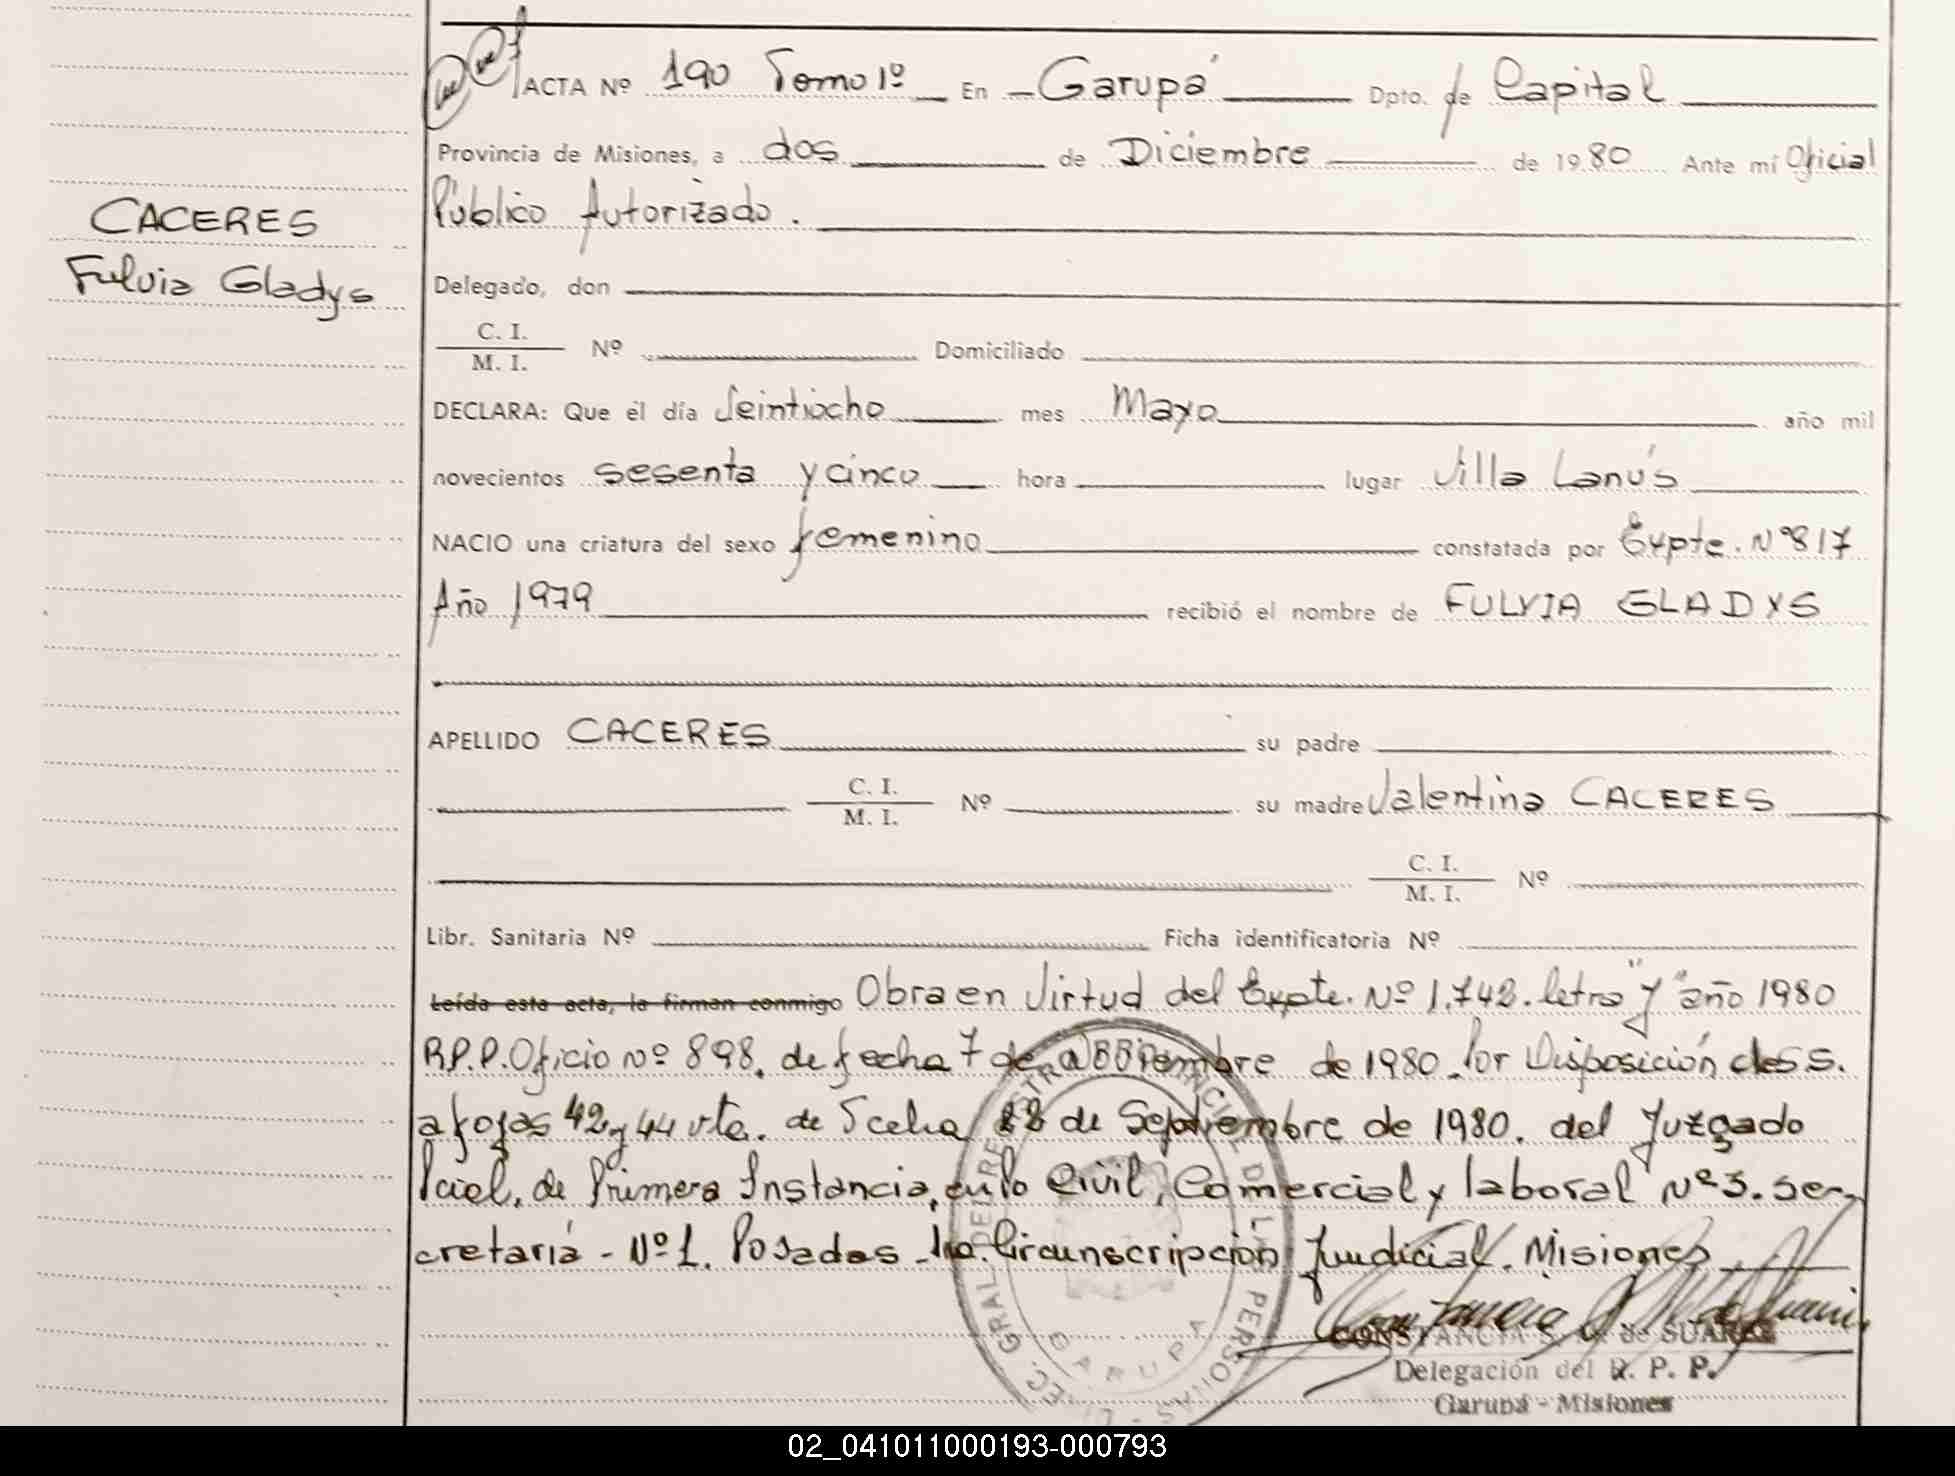 ACTA Nº 190 Tomo 1º En Garupá Dpto. de Capital
Provincia de Misiones, a dos de Diciembre de 1980 Ante mí Oficial
Público Autorizado.
CACERES
Fulvia Gladys
Delegado, don
C. I.
M. I.
Nº Domiciliado
DECLARA: Que el día Veintiocho mes Mayo año mil
novecientos sesenta y cinco hora lugar Villa Lanús
NACIO una criatura del sexo femenino constatada por Expte. Nº 817
Año 1979 recibió el nombre de FULVIA GLADYS
APELLIDO CACERES su padre
C. I.
M. I.
Nº su madre Valentina CACERES
C. I.
M. I.
Nº
Libr. Sanitaria Nº Ficha identificatoria Nº
Leída esta acta, la firman conmigo Obra en Virtud del Expte. Nº 1.742. letra "Y" año 1980
R.P.P. Oficio nº 898. de fecha 7 de de 1980. Por Disposición de S.S.
a fojas 42 y 44 vta. de de Septiembre de 1980. del Juzgado
de Primera Instancia, en lo Civil, Comercial y laboral Nº 3. Se-
cretaría - Nº 1. Posadas - 1ra. Circunscripción Jundicial. Misiones
GARUPA
CONSTANCIA S. de SUAREZ
Delegación del R. P. P.
Garupá - Misiones
02_041011000193-000793